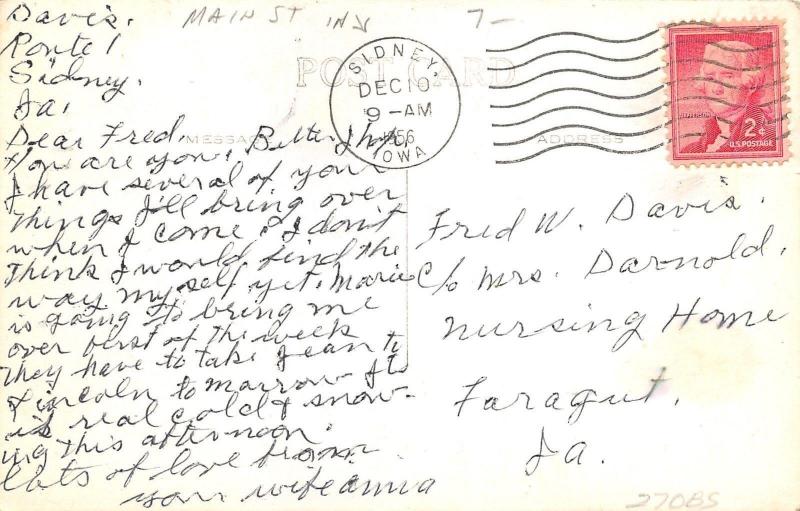 MAIN ST IND
7-
Davis.
Route 1
Sidney.
Ia.
POST CARD
MESSAGE
ADDRESS
SIDNEY,
DEC 10
9-AM
1956
IOWA
JEFFERSON
2¢
U.S. POSTAGE
Dear Fred.
How are you. Better I hope,
I have several of your
things I'll bring over
when I come & I don't
think I would find the
way my self yet. Marie
is going to bring me
over first of the week
They have to take Jean to
Lincoln to morrow. Its
real cold & snow-
ing this afternoon.
lots of love from
your wife anna
Fred W. Davis.
C/o Mrs. Darnold.
Nursing Home
Faragut.
Ia.
27085